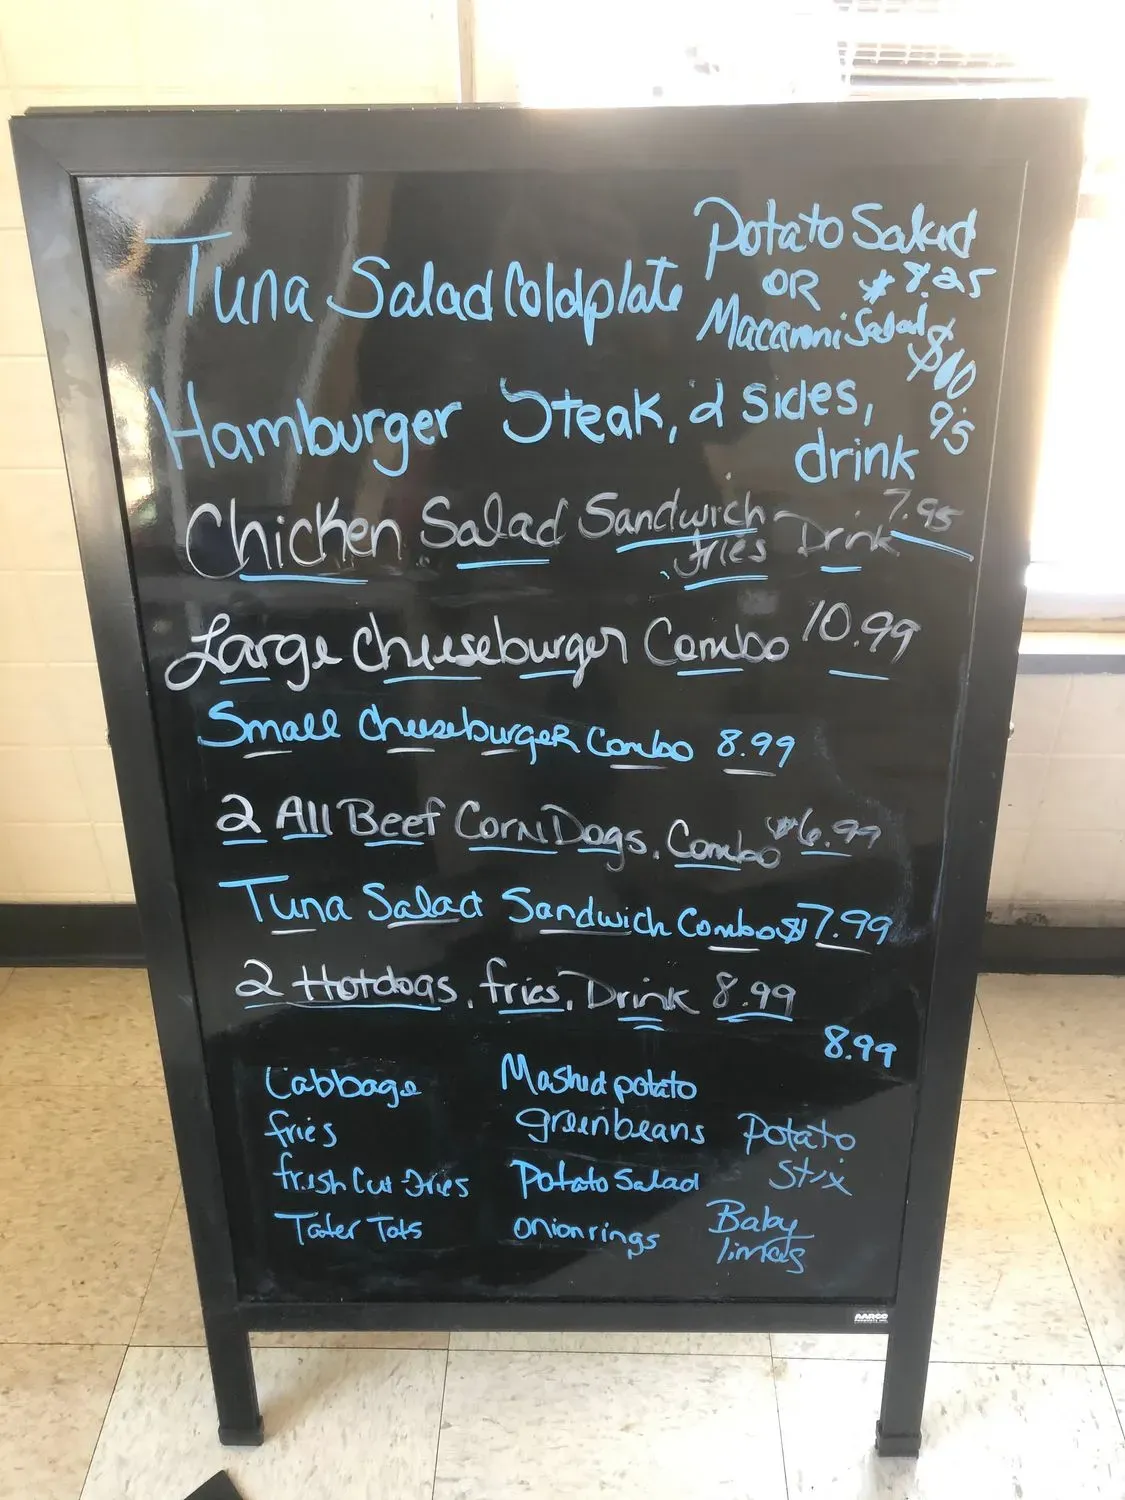 Tuna Salad Coldplate Potato Salad
OR $8.25
Macaroni Salad
Hamburger Steak, 2 sides,
drink
9.95
Chicken Salad Sandwich 7.95
fries Drink
Large Cheeseburger Combo 10.99
Small Cheeseburger Combo 8.99
2 All Beef Corn Dogs, Combo $6.99
Tuna Salad Sandwich Combo $7.99
2 Hotdogs, fries, Drink 8.99
8.99
Cabbage
fries
fresh Cut Fries
Tater Tots
Mashed potato
greenbeans
Potato Salad
onion rings
Potato
Stix
Baby
limas
AARCO